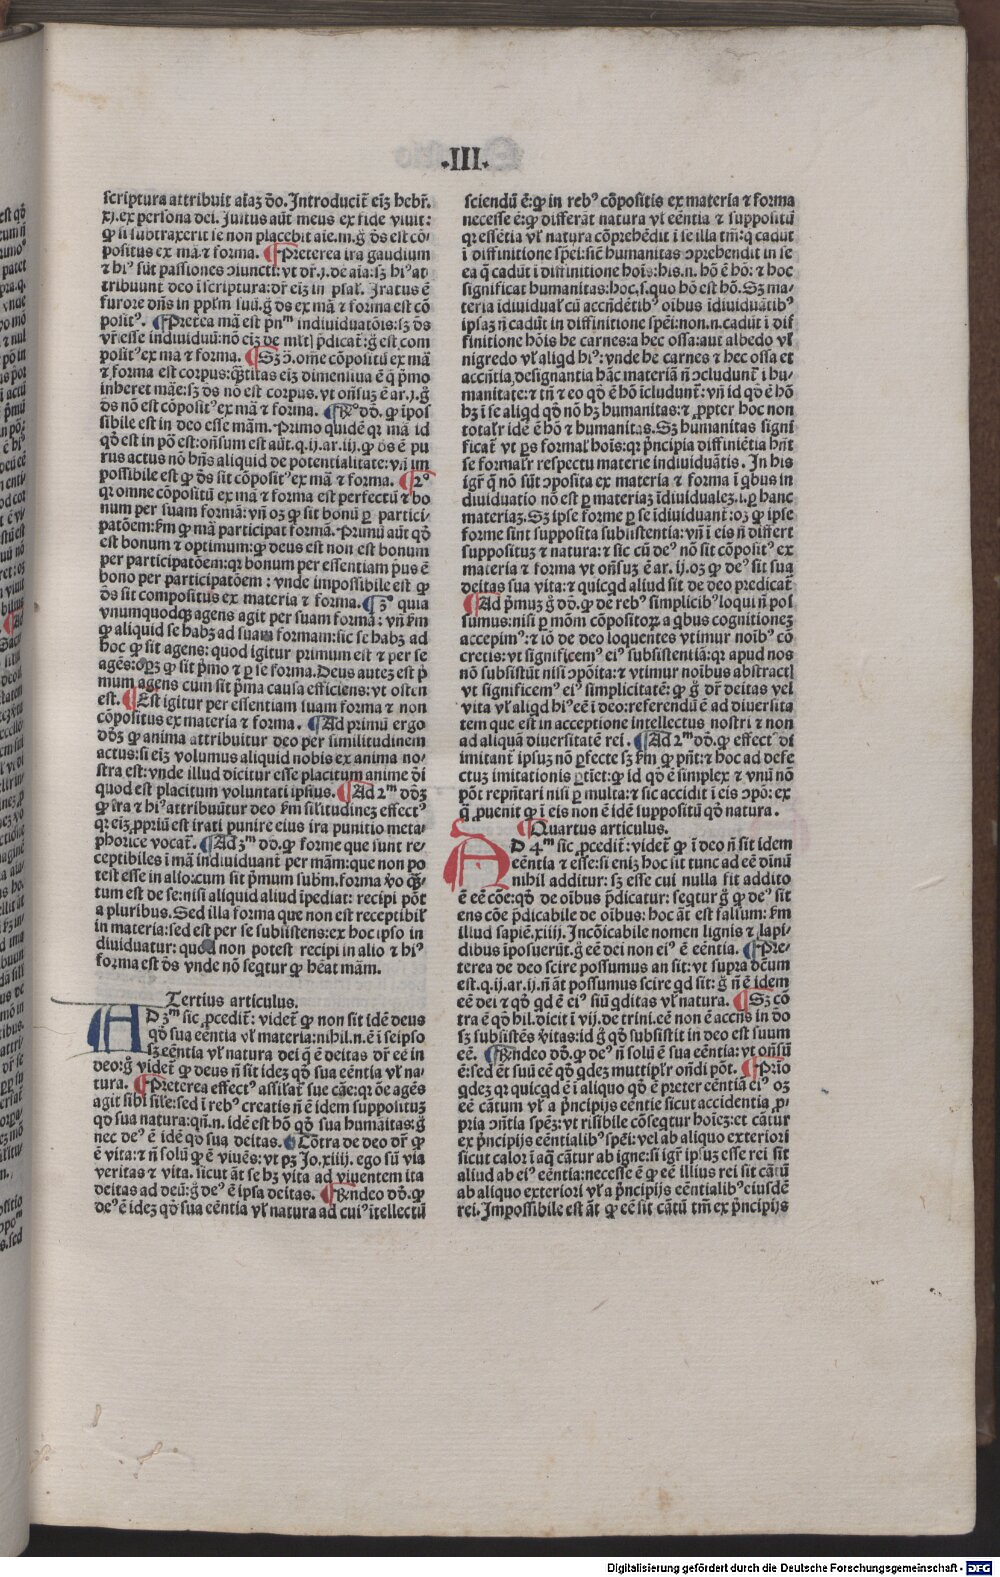 .III.
scriptura attribuit aīaʒ dō. Introducit̄ eīʒ hebr̄.
xj. ex persona dei. Iustus aūt meus ex fide viuit:
ꝙ si subtraxerit se non placebit aīe.m.g̊ dē est cō-
positus ex mā ⁊ forma. ¶ Preterea ira gaudium
⁊ hiꝰ sūt passiones ↄiuncti: vt dr̄.j.de aīa: sʒ hiꝰ at
tribuunt deo ī scriptura: dr̄ eīʒ in psal̄. Iratus ē
furore dn̄s in ppl̄m suū. g̊ ds̄ ex mā ⁊ forma est cō
positꝰ. ¶ Pretea mā est p̄nᵐ indiuiduatōis: sʒ ds̄
vr̄ esse indiuiduū: nō eīʒ de mltꝭ p̄dicat̄: g̊ est com
positꝰ ex mā ⁊ forma. ¶ Sʒ ↄ̄. om̄e cōpositū ex mā
⁊ forma est corpus: q̄ntitas eīʒ dimensiua ē q̄ p̄mo
inheret māe: sʒ ds̄ nō est corpus. vt on̄suʒ ē ar.j.g̊
ds̄ nō est cōpositꝰ ex mā ⁊ forma. ¶ R̄ꝰ dō. ꝙ īpos
sibile est in deo esse mām. Primo quidē qꝛ mā id
qd̄ est in pō est: on̄sum est aūt.q.ij.ar.iij.ꝙ ds̄ ē pu
rus actus nō hn̄s aliquid de potentialitate: vn̄ im
possibile est ꝙ ds̄ sit cōpositꝰ ex mā ⁊ forma. ¶ 2ᵒ
qꝛ omne cōpositū ex mā ⁊ forma est perfectū ⁊ bo
num per suam formā: vn̄ oʒ ꝙ sit bonū ꝑ partici-
patōem: k̄m ꝙ mā participat formā. Primū aūt qd̄
est bonum ⁊ optimum: ꝙ deus est non est bonum
per participatōem: qꝛ bonum per essentiam p̄us ē
bono per participatōem: vnde impossibile est ꝙ
ds̄ sit compositus ex materia ⁊ forma. ¶ 3ᵒ quia
vnumquodqʒ agens agit per suam formā: vn̄ k̄m
ꝙ aliquid se habʒ ad suam formam: sic se habʒ ad
hoc ꝙ sit agens: quod igitur primum est ⁊ per se
agēs: opʒ ꝙ sit p̄mo ⁊ ꝑ se forma. Deus auteʒ est p̄
mum agens cum sit p̄ma causa efficiens: vt osten
est. ¶ Est igitur per essentiam suam forma ⁊ non
cōpositus ex materia ⁊ forma. ¶ Ad primū ergo
dōʒ ꝙ anima attribuitur deo per similitudinem
actus: si eīʒ volumus aliquid nobis ex anima no-
stra est: vnde illud dicitur esse placitum anime dī
quod est placitum voluntati ipsius. ¶ Ad 2ᵐ dōʒ
ꝙ ira ⁊ hiꝰ attribuūtur deo k̄m sil̄itudineʒ effectꝰ
qꝛ eīʒ ꝓpriū est irati punire eius ira punitio meta-
phorice vocat̄. ¶ Ad 3ᵐ dō. ꝙ forme que sunt re-
ceptibiles ī mā indiuiduant̄ per mām: que non po
test esse in alio: cum sit p̄mum subm̄. forma v̊o q̄ʒ-
tum est de se: nisi aliquid aliud īpediat: recipi pōt
a pluribus. Sed illa forma que non est receptibil̄
in materia: sed est per se subsistens: ex hoc ipso in
diuiduatur: quod non potest recipi in alio ⁊ hiꝰ
forma est ds̄ vnde nō seqt̄ur ꝙ hēat mām.
Tertius articulus.
AD 3ᵐ sic ꝓcedit̄: videt̄ ꝙ non sit idē deus
qd̄ sua eēntia vl̄ materia: nihil.n.ē ī seipso
sʒ eēntia vl̄ natura dei q̄ ē deitas dr̄ eē in
deo: g̊ videt̄ ꝙ deus n̄ sit ideʒ qd̄ sua eēntia vl̄ na-
tura. ¶ Preterea effectꝰ assilat̄ sue cāe: qꝛ ōe agēs
agit sibi sil̄e: sed ī rebꝰ creatis n̄ ē idem suppositūʒ
qd̄ sua natura: qn̄.n. idē est hō qd̄ sua humāitas: g̊
nec deꝰ ē idē qd̄ sua deitas. ¶ Cōtra de deo dr̄ ꝙ
ē vita: ⁊ n̄ solū ꝙ ē viuēs: vt pʒ Io.xiiij. ego sū via
veritas ⁊ vita. sicut āt se hʒ vita ad viuentem ita
deitas ad deū: g̊ deꝰ ē ipsa deitas. ¶ R̄ndeo dō. ꝙ
deꝰ ē ideʒ qd̄ sua eēntia vl̄ natura ad cuiꝰ ītellectū
sciendū ē: ꝙ in rebꝰ cōpositis ex materia ⁊ forma
necesse ē: ꝙ differāt natura vl̄ eēntia ⁊ suppositū
qꝛ essētia vl̄ natura cōprehēdit ī se illa tm̄: q̄ cadūt
ī diffinitione spēi: sic̄ humanitas ↄprehendit in se
ea q̄ cadūt ī diffinitione hoīs: his.n. hō ē hō: ⁊ hoc
significat humanitas: hoc.s. quo hō est hō. Sʒ ma-
teria īdiuidual̄ cū accn̄dētibꝰ oībus īdiuiduātibꝰ
ipsaʒ n̄ cadūt in diffinitione spēi: non.n.cadūt ī dif
finitione hoīs he carnes: a hec ossa: aut albedo vl̄
nigredo vl̄ aliqd hiꝰ: vnde he carnes ⁊ hec ossa et
accn̄tia designantia hāc materiā n̄ ↄcludunt̄ ī hu-
manitate: ⁊ tn̄ ī eo qd̄ ē hō īcludunt̄: vn̄ id qd̄ ē hō
hʒ ī se aliqd qd̄ nō hʒ humanitas: ⁊ ꝓpter hoc non
totalr̄ idē ē hō ⁊ humanitas. Sʒ humanitas signi
ficat̄ vt ꝑs formal̄ hoīs: qꝛ p̄ncipia diffiniētia hn̄t
se formalr̄ respectu materie indiuiduātis. In his
igr̄ q̄ nō sūt ↄposita ex materia ⁊ forma ī qbus in
diuiduatio nō est ꝑ materiaʒ īdiuidualeʒ.i.ꝑ hanc
materiaʒ. Sʒ ipse forme ꝑ se īdiuiduant̄: oʒ ꝙ ipse
forme sint supposita subsistentia: vn̄ ī eis n̄ differt
suppositūʒ ⁊ natura: ⁊ sic cū deꝰ nō sit cōpositꝰ ex
materia ⁊ forma vt on̄suʒ ē ar.ij.oʒ ꝙ deꝰ sit sua
deitas sua vita: ⁊ quicqd aliud sit de deo predicat̄
¶ Ad p̄muʒ g̊ dō. ꝙ de rebꝰ simplicibꝰ loqui n̄ pos
sumus: nisi ꝑ mōm cōpositoꝝ a qbus cognitioneʒ
accepimꝰ: ⁊ iō de deo loquentes vtimur noībꝰ cō
cretis: vt significemꝰ eiꝰ subsistentiā: qꝛ apud nos
nō subsistūt nisi ↄpōita: ⁊ vtimur noībus abstractꝭ
vt significemꝰ eiꝰ simplicitatē: ꝙ g̊ dr̄ deitas vel
vita vl̄ aliqd hiꝰ eē ī deo: referendū ē ad diuersita
tem que est in acceptione intellectus nostri ⁊ non
ad aliquā diuersitatē rei. ¶ Ad 2ᵐ dō. ꝙ effectꝰ dī
imitant̄ ipsuʒ nō ꝑfecte sʒ k̄m ꝙ pn̄t: ⁊ hoc ad defe
ctuʒ imitationis ꝑtīet: ꝙ id qd̄ ē simplex ⁊ vnū nō
pōt repn̄tari nisi ꝑ multa: ⁊ sic accidit ī eis ↄpō: ex
q̄ ꝓuenit ꝙ ī eis non ē idē suppositū qd̄ natura.
¶ Quartus articulus.
AD 4ᵐ sic ꝓcedit̄: videt̄ ꝙ ī deo n̄ sit idem
eēntia ⁊ esse: si eniʒ hoc sit tunc ad eē dīnū
nihil additur: sʒ esse cui nulla fit additō
ē eē cōe: qd̄ de oībus p̄dicatur: seqtur g̊ ꝙ deꝰ sit
ens cōe p̄dicabile de oībus: hoc āt est falsum: k̄m
illud sapiē.xiiij. Incōicabile nomen lignis ⁊ lapi-
dibus īposuerūt. g̊ eē dei non eiꝰ ē eēntia. ¶ Pre-
terea de deo scire possumus an sit: vt supra dc̄um
est.q.ij.ar.ij.n̄ āt possumus scire qd sit: g̊ n̄ ē idem
eē dei ⁊ qd̄ qd ē eiꝰ siū qditas vl̄ natura. ¶ Sʒ cō
tra ē qd̄ hil. dicit ī vij. de trini.eē non ē accn̄s in dō
sʒ subsistēs v̊itas: id g̊ qd̄ subsistit in deo est suum
eē. ¶ R̄ndeo dō. ꝙ deꝰ n̄ solū ē sua eēntia: vt on̄sū
ē: sed ēt suū eē qd̄ qdeʒ multiplr̄ on̄di pōt. ¶ Prīo
qdeʒ qꝛ quicqd ē ī aliquo qd̄ ē preter eēntiā eiꝰ oʒ
eē cātum vl̄ a p̄ncipijs eēntie sicut accidentia ꝓ-
pria ↄn̄tia spēʒ: vt risibile cōseqtur hoīeʒ: et cātur
ex p̄ncipijs eēntialibꝰ spēi: vel ab aliquo exteriori
sicut calor ī aq̄ cātur ab igne: si igr̄ ipsuʒ esse rei sit
aliud ab eiꝰ eēntia: necesse ē ꝙ eē illius rei sit cātū
ab aliquo exteriori vl̄ a p̄ncipijs eēntialibꝰ eiusdē
rei. Impossibile est āt ꝙ eē sit cātū tm̄ ex p̄ncipijs
Digitalisierung gefördert durch die Deutsche Forschungsgemeinschaft - DFG